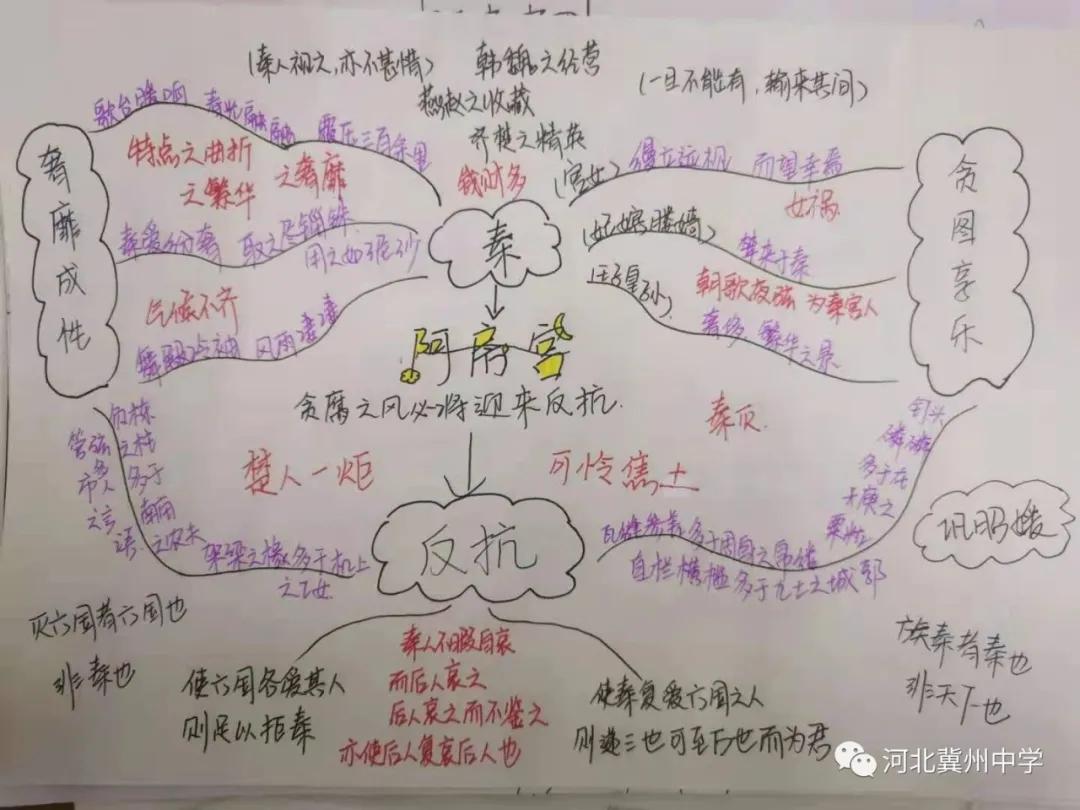 (秦人视之,亦不甚惜)
韩魏之经营
燕赵之收藏
齐楚之精英
(一旦不能有,输来其间)
奢靡成性
歌台暖响 春光融融 覆压三百余里
特点之曲折
之繁华
之奢靡
秦爱纷奢 取之尽锱铢
用之如泥沙
气候不齐
舞殿冷袖 风雨凄凄
钱财多
秦
阿房宫
贪腐之风必将迎来反抗.
(宫女)
缦立远视 而望幸焉
女祸
(妃嫔媵嫱)
辇来于秦
王子皇孙
朝歌夜弦 为秦宫人
奢侈 繁华之景
贪图享乐
负栋
之柱
多于
南亩
之农夫
管弦
市人
之言
语
楚人一炬
可怜焦土
反抗
架梁之椽多于机上
之工女
钉头
磷磷
多于在
庾之
粟粒
瓦缝参差多于周身之帛缕
直栏横槛多于九土之城郭
巩昭媛
灭六国者六国也
非秦也
使六国各爱其人
则足以拒秦
秦人不暇自哀
而后人哀之
后人哀之而不鉴之
亦使后人复哀后人也
使秦复爱六国之人
则递三世可至万世而为君
族秦者秦也
非天下也
河北冀州中学